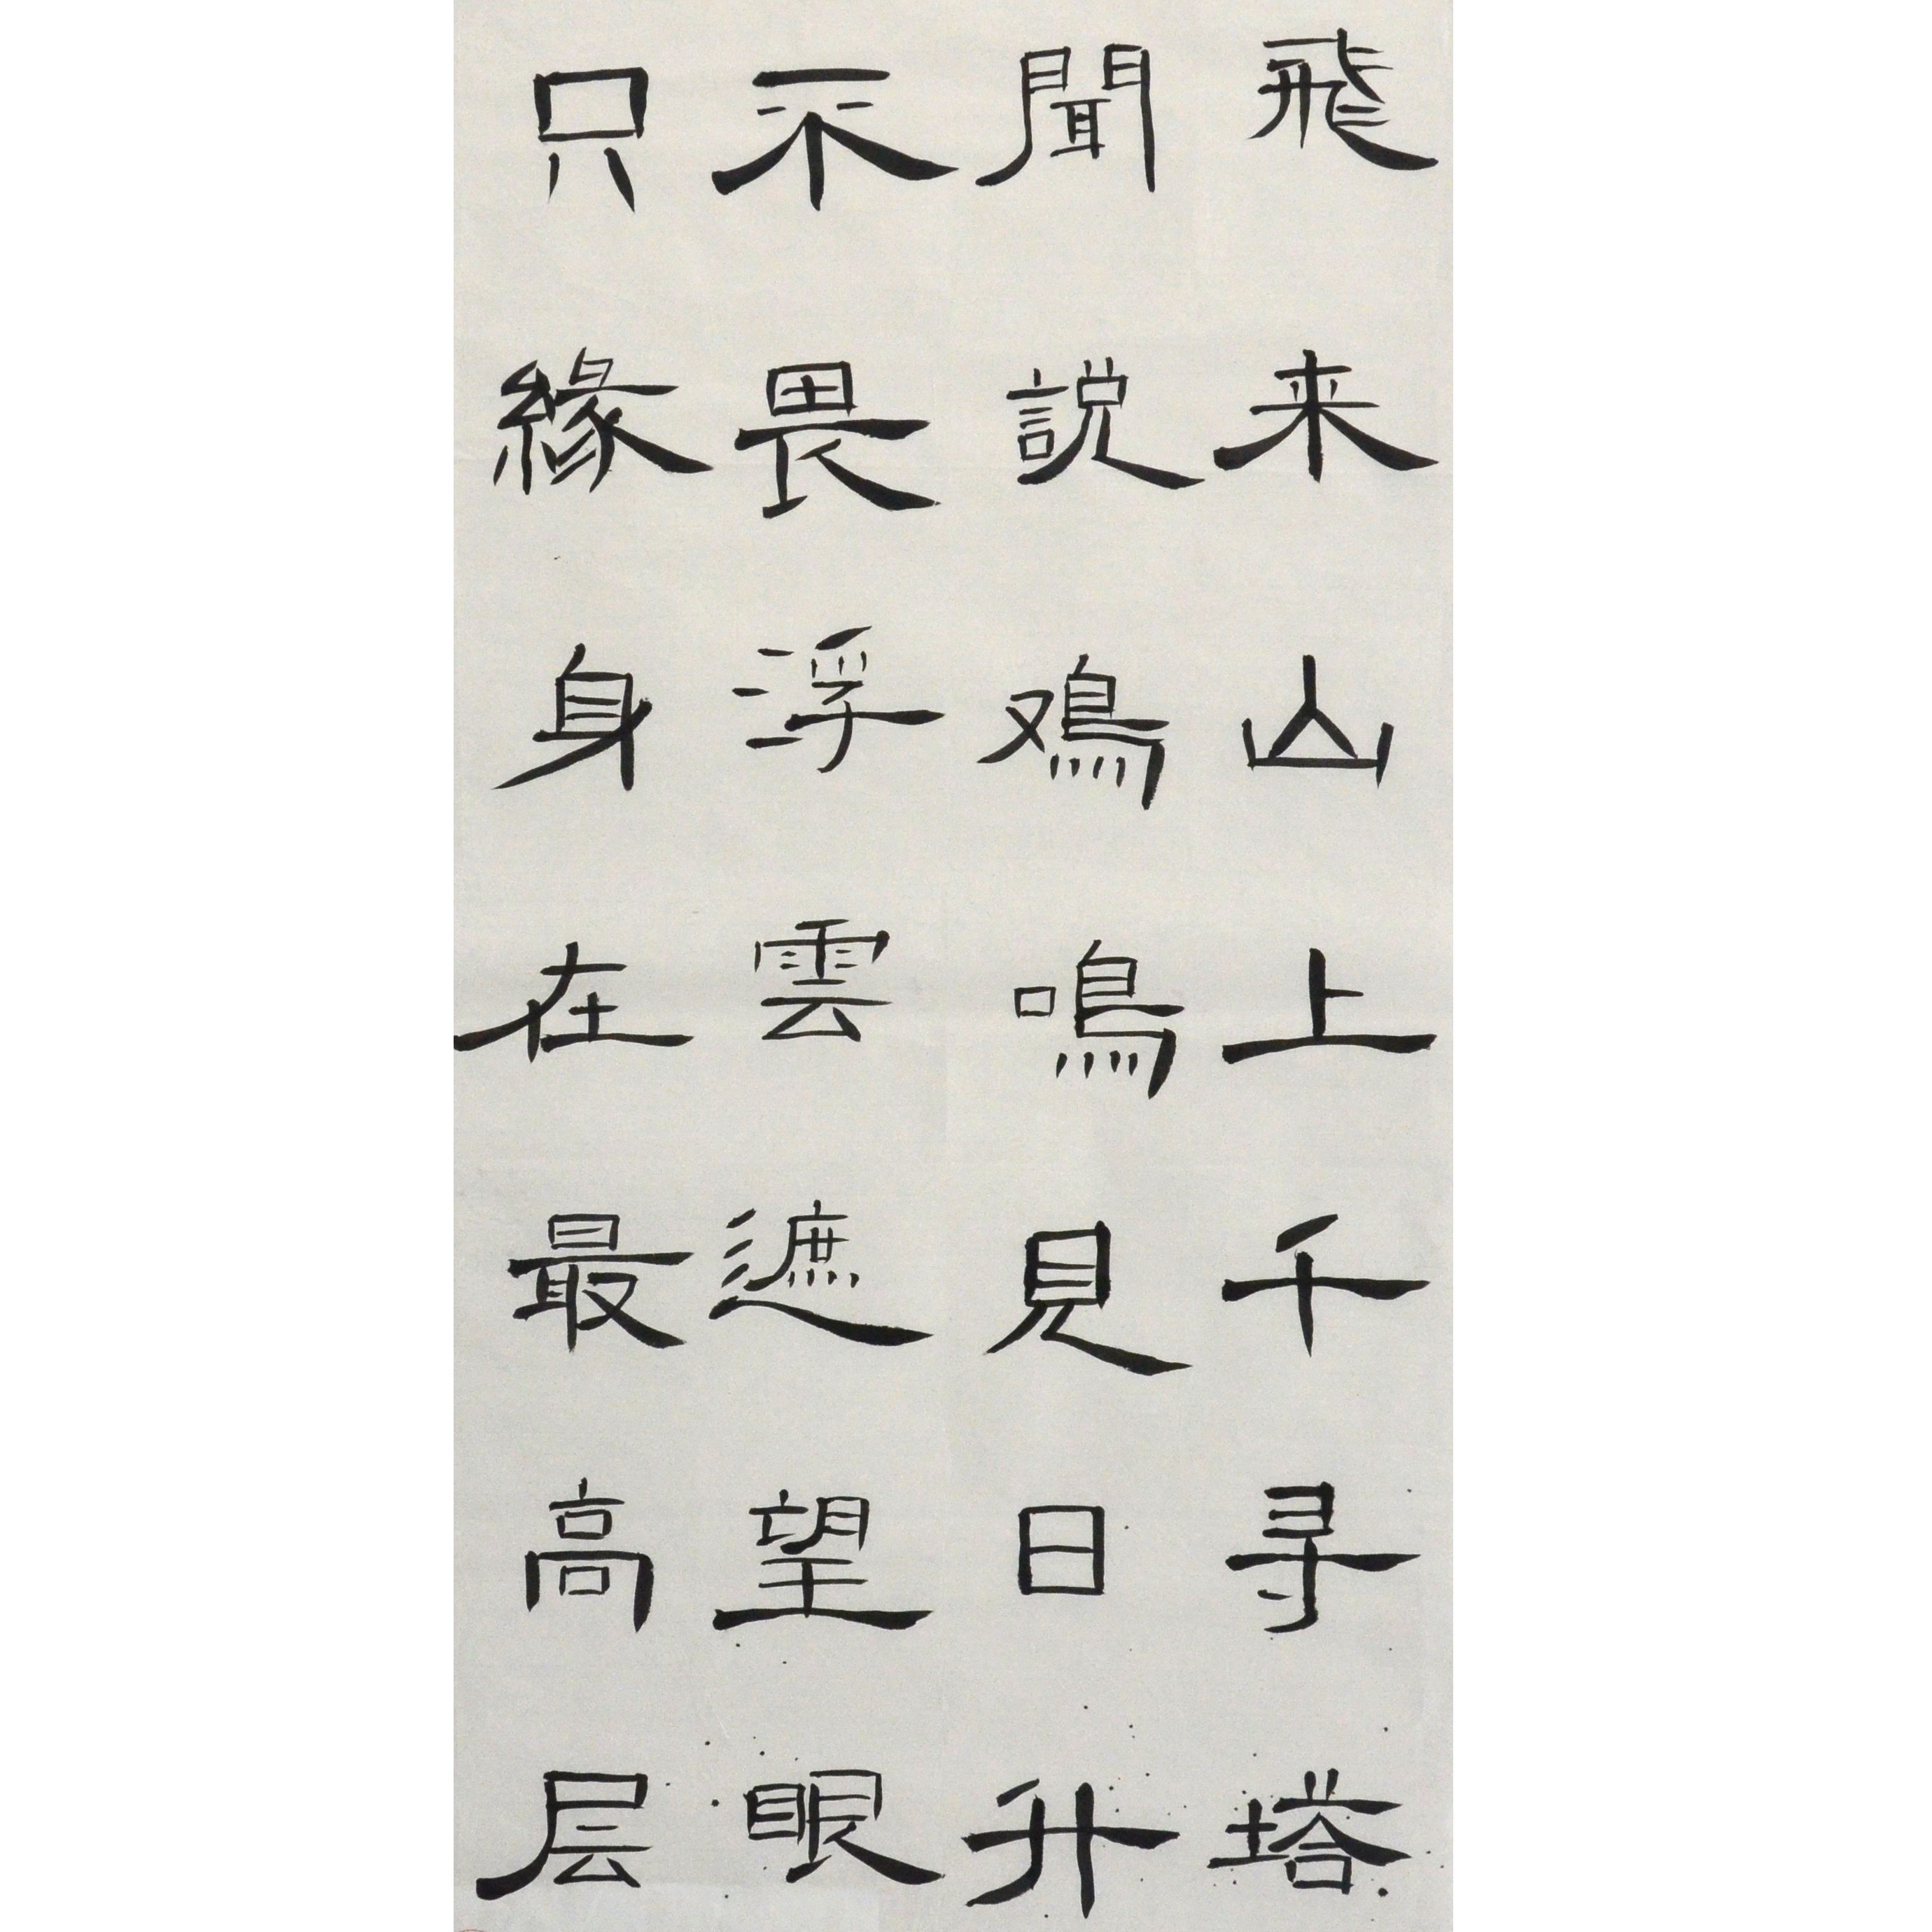 飛来山上千寻塔
聞説鳮鳴見日升
不畏浮雲遮望眼
只緣身在最高层